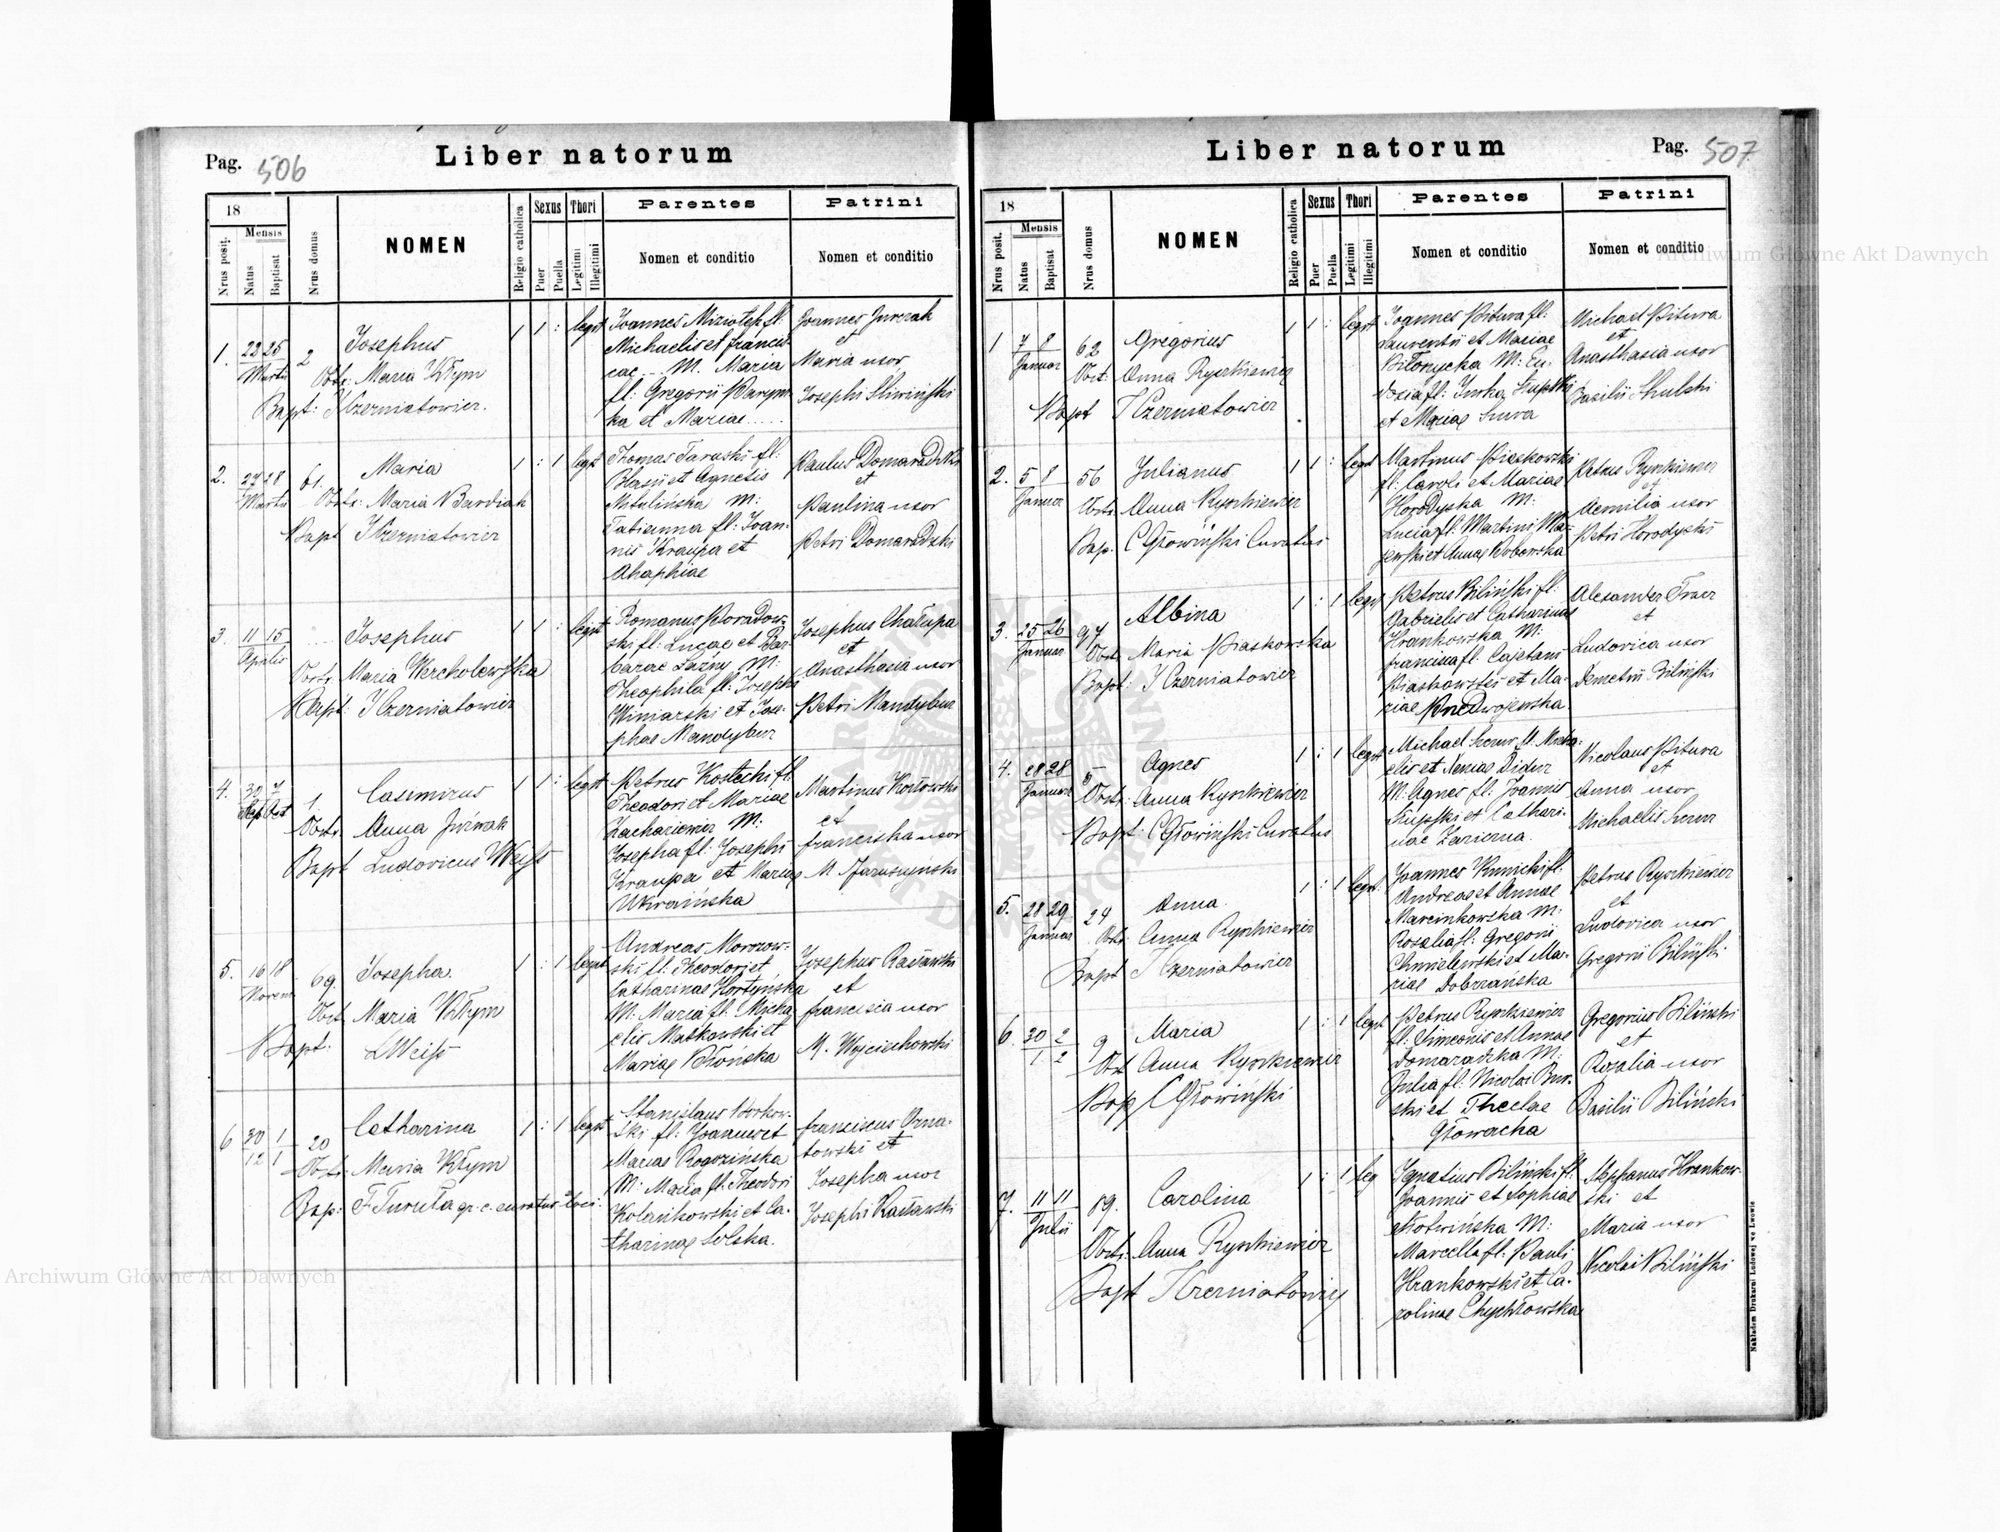 Pag. 506
Liber natorum
18
Mensis
Nrus posit.
Natus
Baptisat
Nrus domus
NOMEN
Religio catholica
Sexus
Puer
Puella
Thori
Legitimi
Illegitimi
Parentes
Nomen et conditio
Patrini
Nomen et conditio
1. 22 25 Martii 2 Josephus 1 1 : legit
Obst: Maria Kłym
Bapt: J Czerniatowicz.
Joannes fl:
Michaelis et Francis-
cae M. Maria
fl: Gregorii
ka et Mariae
Joannes Jurczak
et
Maria uxor
Josephi Śliwiński
2. 27 28 Martii 61. Maria 1 : 1 legit
Obst: Maria Bardiak
Bapt J Czerniatowicz
Thomas Taraski fl:
Blasii et Agnetis
M:
fl: Joan-
nis Kraupa et
Ahaphiae
Paulus Domaradzki
et
Paulina uxor
Petri Domaradzki
3. 11 15 Aprilis Josephus 1 1 : legit
Obst: Maria Wercholewska
Bapt: J Czerniatowicz
Romanus Poradow-
ski fl: Lucae et Bar-
barae Łaźny M:
Theophila fl: Josephi
Winiarski et Jose-
phae Mandybur
Josephus Chałupa
et
Anasthasia uxor
Petri Mandybur
4. 30 7 Sep Oct 1. Casimirus 1 1 : legit
Obst. Anna
Bapt Ludovicus Weiss
Petrus Kostecki fl.
Theodori et Mariae
Zachariewicz M:
Josepha fl: Josephi
Kraupa et Mariae
Ukraińska
Martinus Kozłowski
et
Franciska uxor
M
5. 16 18 Novem 69. Josepha. 1 : 1 legit
Obst Maria Kłym
Bapt. L Weiss
Andreas Morozow-
ski fl: Theodori et
Catharinae Hortyńska
M: Maria fl: Micha-
elis Matkowski et
Mariae Błońska
Josephus Raławski
et
Francisca uxor
M. Wojciechowski
6 30 1 12 1 20 Catharina 1 : 1 legit
Obst: Maria Kłym
Bap: F Turuła gr. c. curatus loci
Stanislaus Borkow-
ski fl: Joannis et
Mariae Rogozińska
M: Maria fl: Theodori
Kolankowski et Ca-
tharinae Solska.
Franciscus Orna-
towski et
Josepha uxor
Josephi Raławski
Pag. 507
Liber natorum
18
Mensis
Nrus posit.
Natus
Baptisat
Nrus domus
NOMEN
Religio catholica
Sexus
Puer
Puella
Thori
Legitimi
Illegitimi
Parentes
Nomen et conditio
Patrini
Nomen et conditio
1 7 8 Januar 62 Gregorius 1 1 : legit
Obst: Anna Ryszkiewicz
Bapt J Czerniatowicz
Joannes Pitura fl:
Laurentii et Mariae
Biłonycka M: Eu-
docia fl:
et Mariae
Michael Pitura
et
Anasthasia uxor
Basilii Skulski
2. 5 8 Januar 56 Julianus 1 1 : legit
Obst. Anna Ryszkiewicz
Bap. C Głowiński Curatus
Martinus Piaskowski
fl: Caroli et Mariae
Horodyska M:
Lucia fl: Martini Ma-
jewski et Annae Bobowska
Petrus Ryszkiewicz
et
Aemilia uxor
Petri Horodyski
3. 25 26 Januar 97 Albina 1 : 1 legit
Obst: Maria Piaskowska
Bapt: J Czerniatowicz
Petrus Biliński fl:
Gabrielis et Catharinae
Hrankowska M:
Francisca fl: Cajetani
Piaskowski et Ma-
riae Przedwojewska.
Alexander
et
Ludovica uxor
Demetrii Biliński
4. 28 28 Januar 5 Agnes 1 : 1 legit
Obst: Anna Ryszkiewicz
Bapt: C Głowiński Curatus
Michael fl. Micha-
elis et Didur
M: Agnes fl: Joannis
et Cathari-
nae
Nicolaus Pitura
et
Anna uxor
Michaelis
5. 28 29 Januar 24 Anna. 1 : 1 legit.
Obst. Anna Ryszkiewicz
Bapt J Czerniatowicz
Joannes fl:
Andreae et Annae
Marcinkowska M:
Rosalia fl: Gregorii
Chmielewski et Ma-
riae Dobrzańska
Petrus Ryszkiewicz
et
Ludovica uxor
Gregorii Biliński
6. 30 2 1 2 9 Maria 1 : 1 legit
Obst Anna Ryszkiewicz
Bap C Głowiński
Petrus Ryszkiewicz
fl: Simeonis et Annae
Domaradzka M:
Julia fl: Nicolai Bur-
ski et Theclae
Głowacka
Gregorius Biliński
et
Rozalia uxor
Basilii Biliński
7. 11 11 Julii 89. Carolina 1 : 1 leg
Obst: Anna Ryszkiewicz
Bapt J Czerniatowicz
Ignatius Biliński fl:
Joannis et Sophiae
Kotwińska M:
Marcella fl: Pauli
Hrankowski et Ca-
rolinae Chychłowska
Stephanus Hrankow-
ski et
Maria uxor
Nicolai Biliński
Nakładem Drukarni Ludowej we Lwowie
Archiwum Główne Akt Dawnych
Archiwum Główne Akt Dawnych